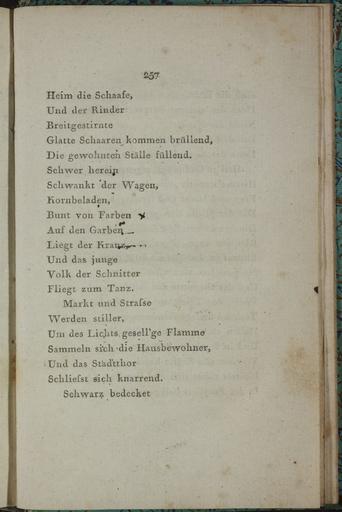 257
Heim die Schaafe,
Und der Rinder
Breitgestirnte
Glatte Schaaren kommen brüllend,
Die gewohnten Ställe füllend.
Schwer herein
Schwankt der Wagen,
Kornbeladen,
Bunt von Farben
Auf den Garben
Liegt der Kranz
Und das junge
Volk der Schnitter
Fliegt zum Tanz.
Markt und Straſse
Werden stiller,
Um des Lichts gesell'ge Flamme
Sammeln sich die Hausbewohner,
Und das Städtthor
Schlieſst sich knarrend.
Schwarz bedecket